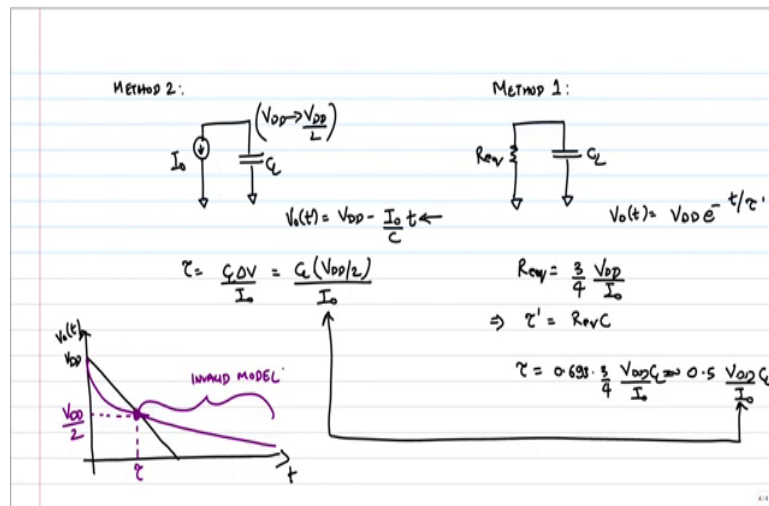 METHOD 2:
(VDD→VDD/2)
I₀
CL
V₀(t) = VDD - I₀/C t ←
τ = CLΔV/I₀ = CL(VDD/2)/I₀
V₀(t)
VDD
VDD/2
INVALID MODEL
τ
t
METHOD 1:
Req
CL
V₀(t) = VDD e^-t/τ'
Req = 3/4 VDD/I₀
⇒ τ' = ReqC
τ = 0.693. 3/4 VDDCL/I₀ ≈ 0.5 VDDCL/I₀